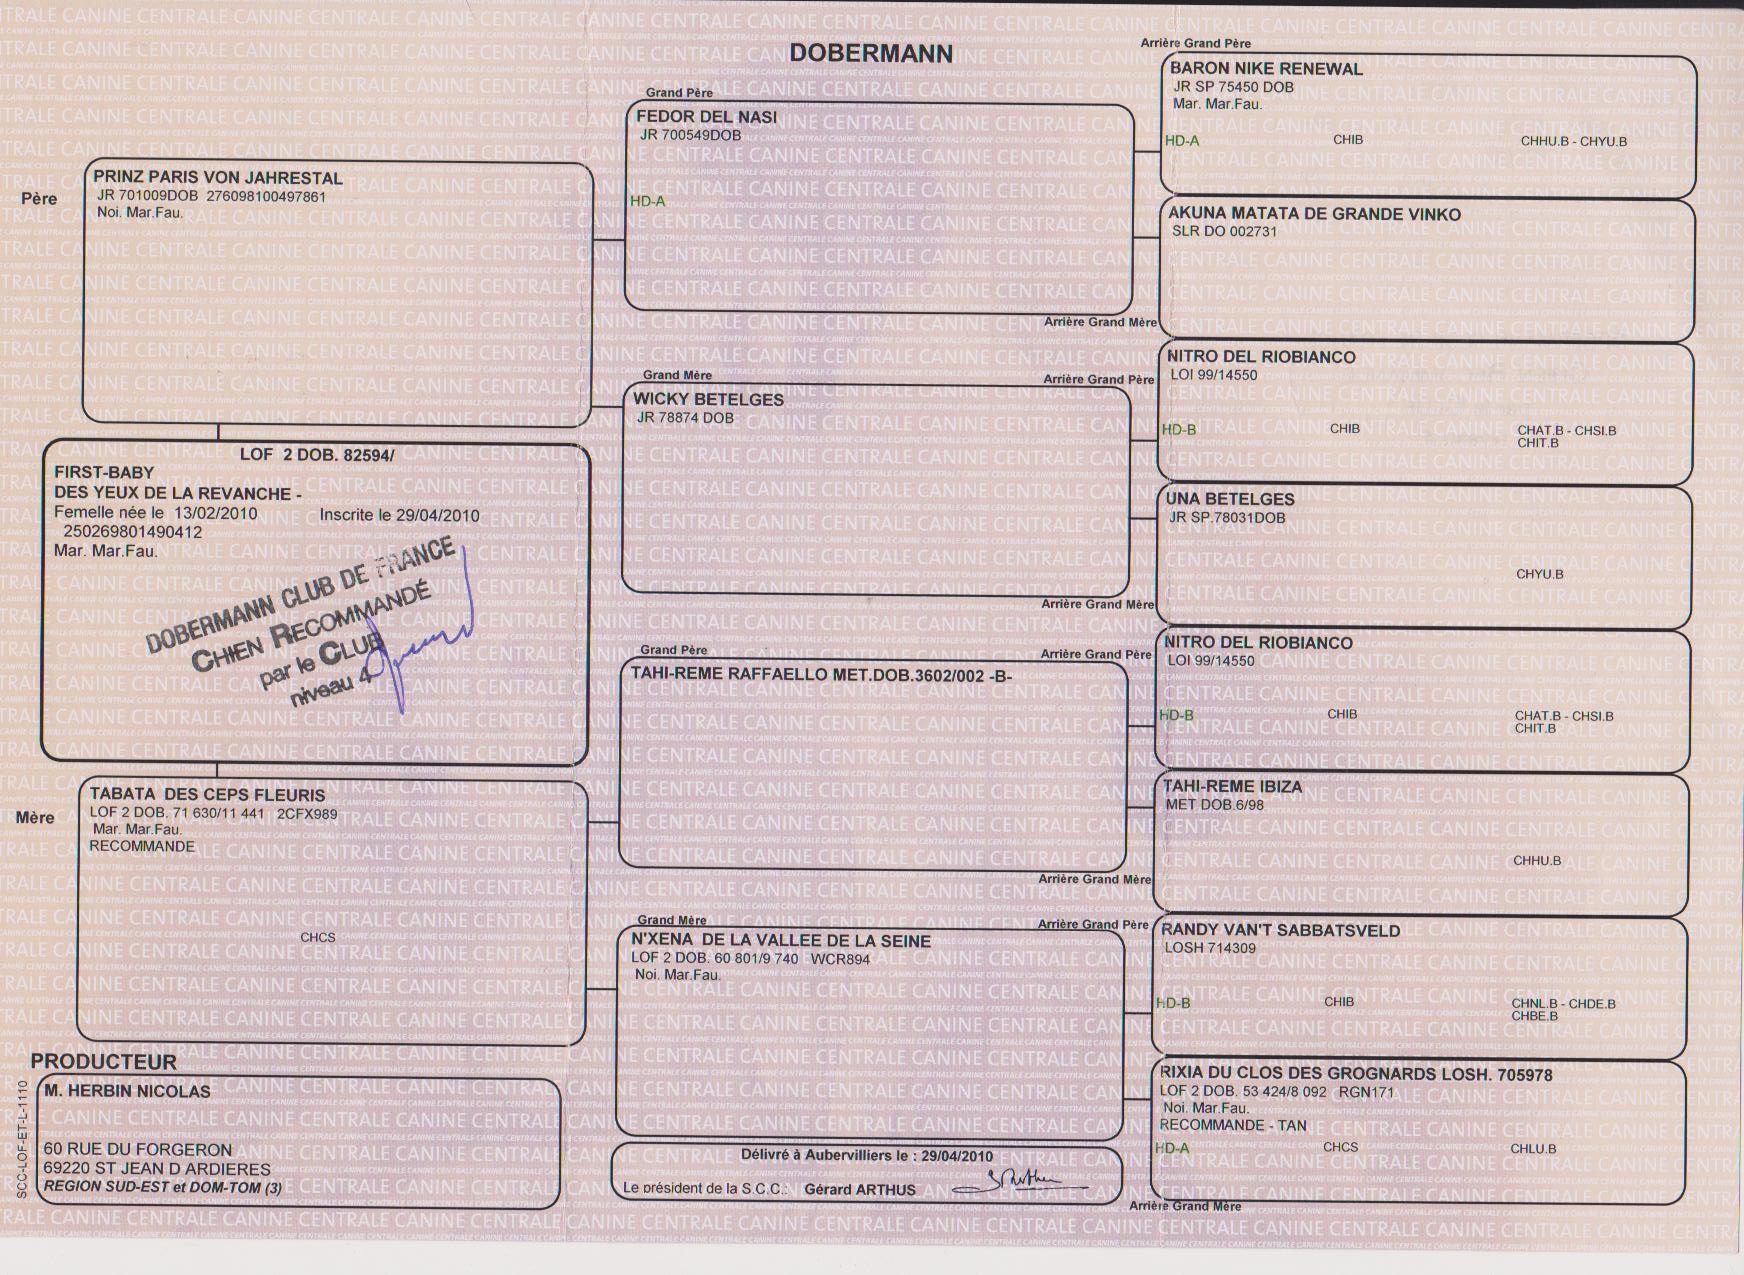 DOBERMANN
Père
PRINZ PARIS VON JAHRESTAL
JR 701009DOB 276098100497861
Noi. Mar.Fau.
LOF 2 DOB. 82594/
FIRST-BABY
DES YEUX DE LA REVANCHE -
Femelle née le 13/02/2010 Inscrite le 29/04/2010
250269801490412
Mar. Mar.Fau.
DOBERMANN CLUB DE FRANCE
CHIEN RECOMMANDÉ
par le CLUB
niveau 4
Mère
TABATA DES CEPS FLEURIS
LOF 2 DOB. 71 630/11 441 2CFX989
Mar. Mar.Fau.
RECOMMANDE
CHCS
PRODUCTEUR
M. HERBIN NICOLAS
60 RUE DU FORGERON
69220 ST JEAN D ARDIERES
REGION SUD-EST et DOM-TOM (3)
SCC-LOF-ET-L-1110
Grand Père
FEDOR DEL NASI
JR 700549DOB
HD-A
Grand Mère
WICKY BETELGES
JR 78874 DOB
Grand Père
TAHI-REME RAFFAELLO MET.DOB.3602/002 -B-
Grand Mère
N'XENA DE LA VALLEE DE LA SEINE
LOF 2 DOB. 60 801/9 740 WCR894
Noi. Mar.Fau.
Délivré à Aubervilliers le : 29/04/2010
Le président de la S.C.C.: Gérard ARTHUS
Arrière Grand Père
BARON NIKE RENEWAL
JR SP 75450 DOB
Mar. Mar.Fau.
HD-A CHIB CHHU.B - CHYU.B
AKUNA MATATA DE GRANDE VINKO
SLR DO 002731
Arrière Grand Mère
Arrière Grand Père
NITRO DEL RIOBIANCO
LOI 99/14550
HD-B CHIB CHAT.B - CHSI.B
CHIT.B
UNA BETELGES
JR SP.78031DOB
CHYU.B
Arrière Grand Mère
Arrière Grand Père
NITRO DEL RIOBIANCO
LOI 99/14550
HD-B CHIB CHAT.B - CHSI.B
CHIT.B
TAHI-REME IBIZA
MET DOB.6/98
CHHU.B
Arrière Grand Mère
Arrière Grand Père
RANDY VAN'T SABBATSVELD
LOSH 714309
HD-B CHIB CHNL.B - CHDE.B
CHBE.B
RIXIA DU CLOS DES GROGNARDS LOSH. 705978
LOF 2 DOB. 53 424/8 092 RGN171
Noi. Mar.Fau.
RECOMMANDE - TAN
HD-A CHCS CHLU.B
Arrière Grand Mère